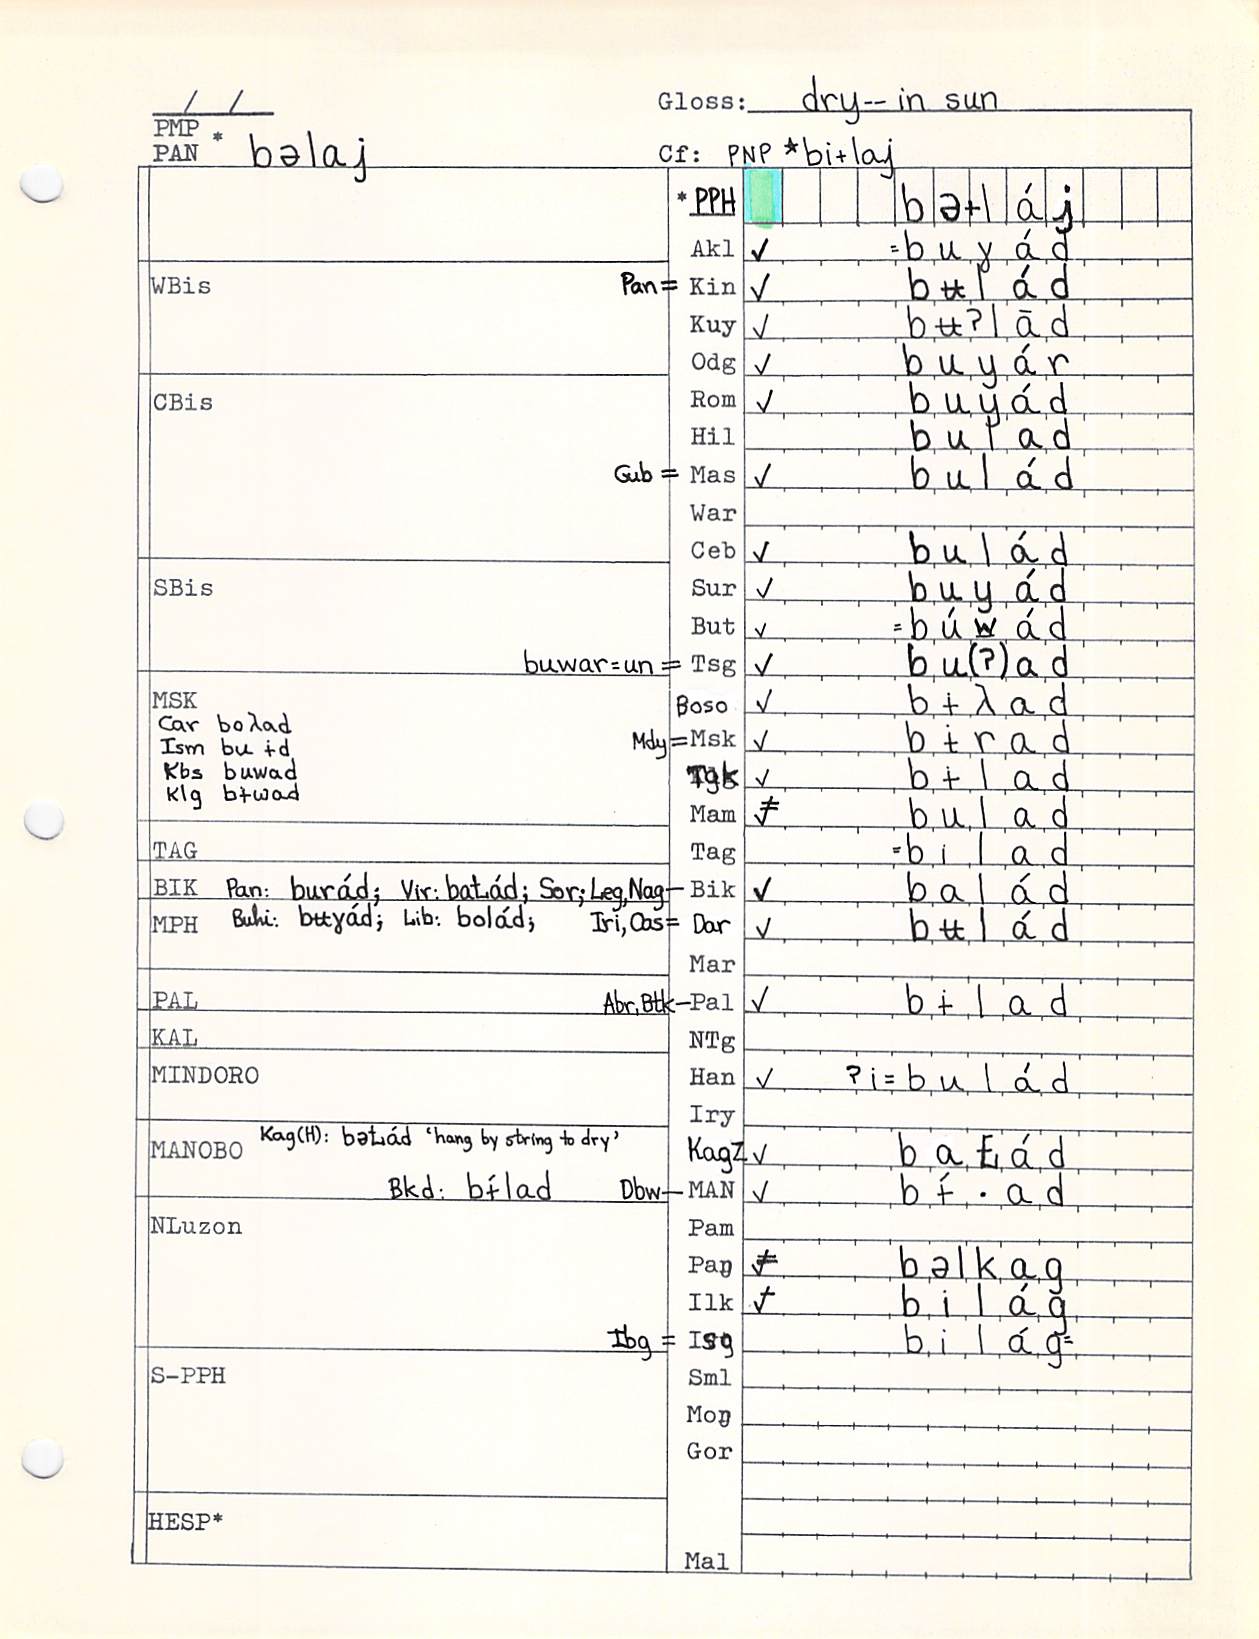 / /
Gloss: dry-- in sun
PMP
PAN * bəlaj
Cf: PNP *bi+laj
* PPH b ə + l á j
Akl ✓ = b u y á d
WBis
Pan = Kin ✓ b ʉ l á d
Kuy ✓ b ʉ ʔ l ā d
Odg ✓ b u y á r
CBis
Rom ✓ b u y á d
Hil b u l a d
Gub = Mas ✓ b u l á d
War
Ceb ✓ b u l á d
SBis
Sur ✓ b u y á d
But ✓ = b ú w á d
buwar=un = Tsg ✓ b u (ʔ) a d
MSK
Boso ✓ b ɨ λ a d
Car boλad
Ism bu ɨd
Mdy = Msk ✓ b ɨ r a d
Kbs buwad
Tgk ✓ b ɨ l a d
Klg bɨwad
Mam ≠ b u l a d
TAG
Tag = b i l a d
BIK Pan: burád; Vir: baƚád; Sor; Leg, Nag – Bik ✓ b a l á d
MPH Buhi: bʉɣád; Lib: bolád; Iri, Oas = Dar ✓ b ʉ l á d
Mar
PAL Abr, Btk – Pal ✓ b ɨ l a d
KAL
NTg
MINDORO
Han ✓ ʔ i = b u l á d
Iry
MANOBO Kag(H): bəƚád ‘hang by string to dry’
KagZ ✓ b a ƚ á d
Bkd: bɨ́lad Dbw – MAN ✓ b ɨ́ . a d
Pam
NLuzon
Paŋ ≠ b ə l k a g
Ilk ✓ b i l á g
Ibg = Isg b i l á g =
S-PPH
Sml
Moŋ
Gor
HESP*
Mal